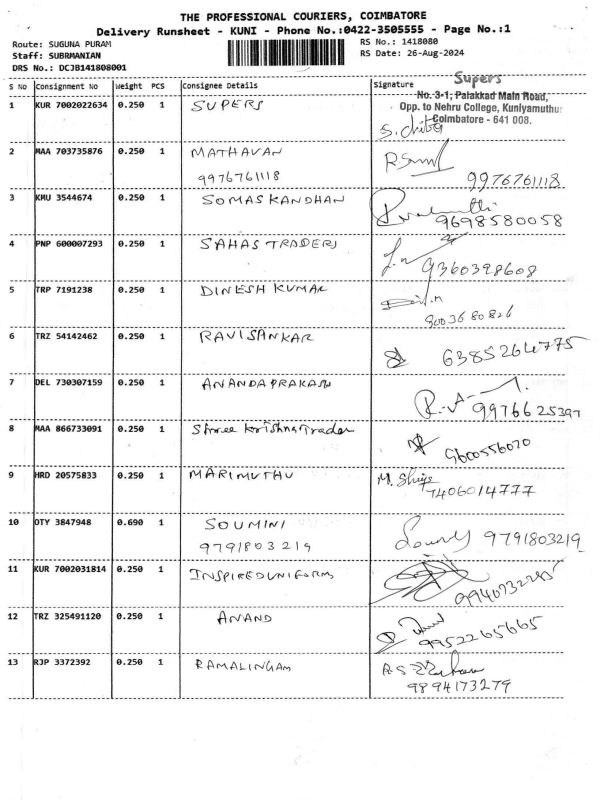 THE PROFESSIONAL COURIERS, COIMBATORE
Delivery Runsheet - KUNI - Phone No.:0422-3505555 - Page No.:1
Route: SUGUNA PURAM
Staff: SUBRMANIAN
DRS No.: DCJB141808001
RS No.: 1418080
RS Date: 26-Aug-2024
S No Consignment No Weight PCS Consignee Details Signature
Supers
No. 3-1, Palakkad Main Road,
Opp. to Nehru College, Kuniyamuthur
Coimbatore - 641 008.
1 KUR 7002022634 0.250 1 SUPERS
2 MAA 703735876 0.250 1 MATHAVAN
9976761118 9976761118
3 KMU 3544674 0.250 1 SOMASKANDHAN
9698580058
4 PNP 600007293 0.250 1 SAHAS TRADERS
9360398608
5 TRP 7191238 0.250 1 DINESH KUMAR
9003680826
6 TRZ 54142462 0.250 1 RAVISANKAR
6385264775
7 DEL 730307159 0.250 1 ANANDAPRAKASH
9976625397
8 MAA 866733091 0.250 1 Shree Krishna Trader
9600556070
9 HRD 20575833 0.250 1 MARIMUTHU
7406014777
10 OTY 3847948 0.690 1 SOUMINI
9791803219 9791803219
11 KUR 7002031814 0.250 1 INSPIREDUNIFORMS
9940732245
12 TRZ 325491120 0.250 1 ANAND
9952265665
13 RJP 3372392 0.250 1 RAMALINGAM
9894173279